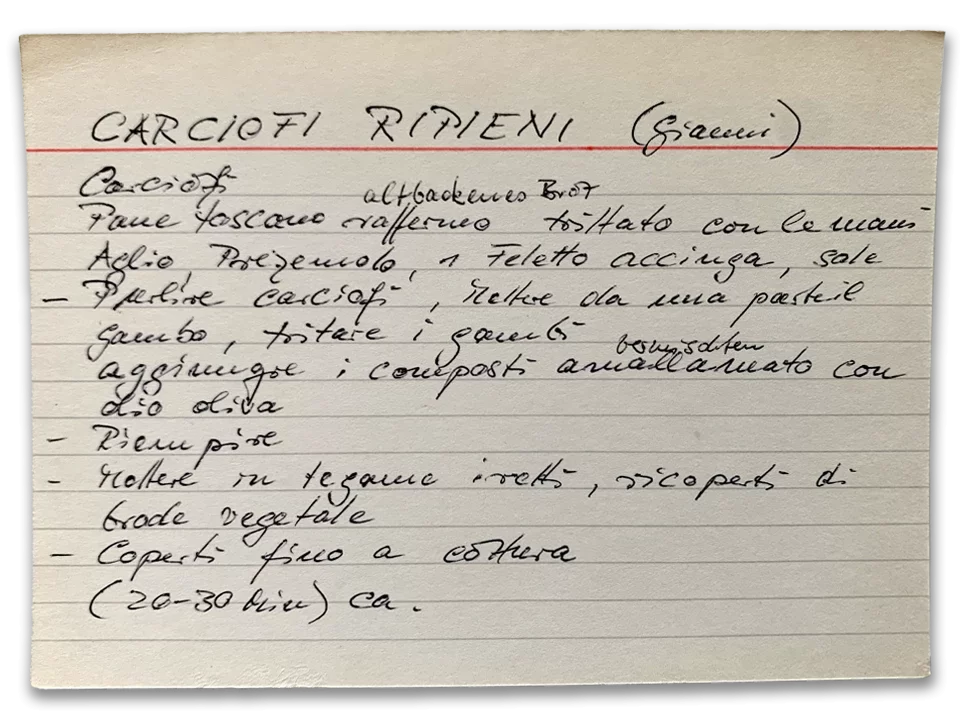 CARCIOFI RIPIENI (Gianni)
Carciofi
altbackenes Brot
Pane toscano raffermo tritato con le mani
Aglio, Prezemolo, 1 Feletto acciuga, sale
- Pulire carciofi, Mettere da una parte il
gambo, tritare i gambi
vermischten
aggiungre i composti amallamato con
olio oliva
- Riempire
- Mettere in tegame iretti, ricoperti di
brode vegetale
- Coperti fino a cottura
(20-30 Min) ca.